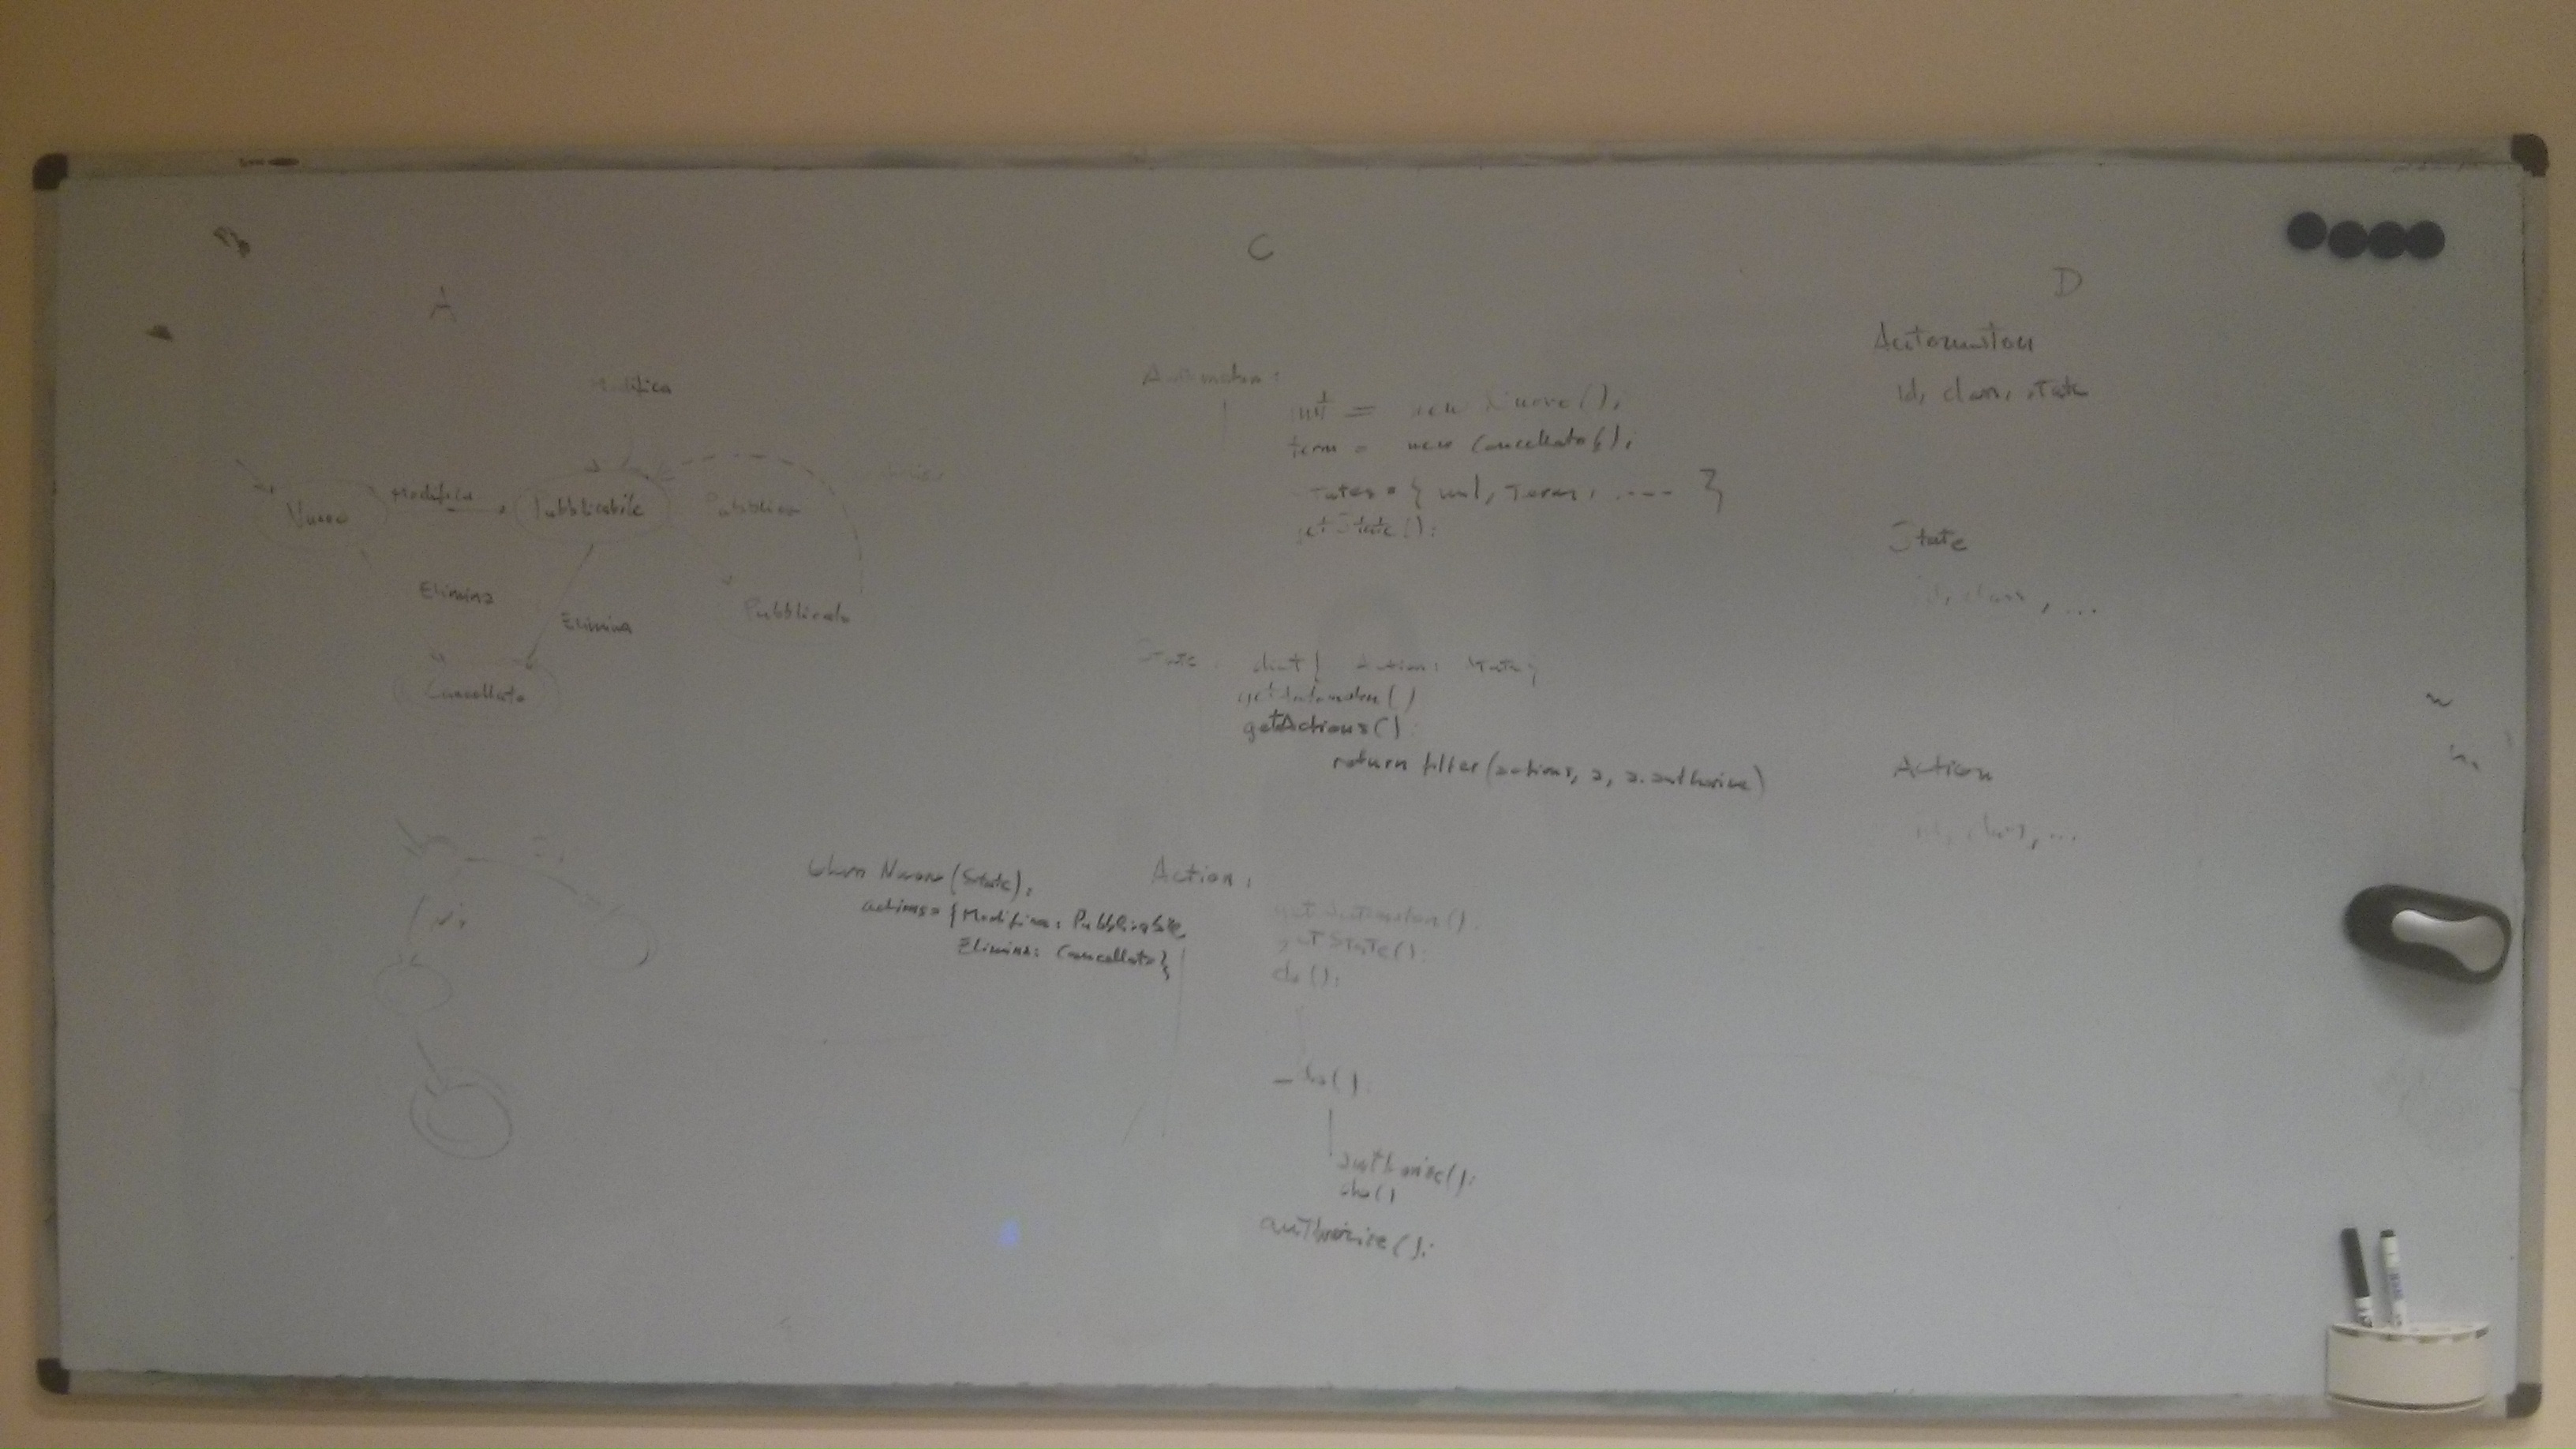 A
Modifica
Nuovo
Modifica
Pubblicabile
Pubblica
Elimina
Elimina
Pubblicato
Cancellato
C
Automaton:
init = new Nuovo();
term = new Cancellato();
states = { init, term, ---- }
getState():
State: dict{ Action: State}
getAutomaton()
getActions():
return filter(actions, a, a.authorize)
class Nuovo(State):
actions={Modifica: Pubblicabile,
Elimina: Cancellato}
Action:
getAutomaton():
getState():
do():
_do():
authorize():
do()
authorize():
D
Automaton
id, class, state
State
id, class, ...
Action
id, class, ...